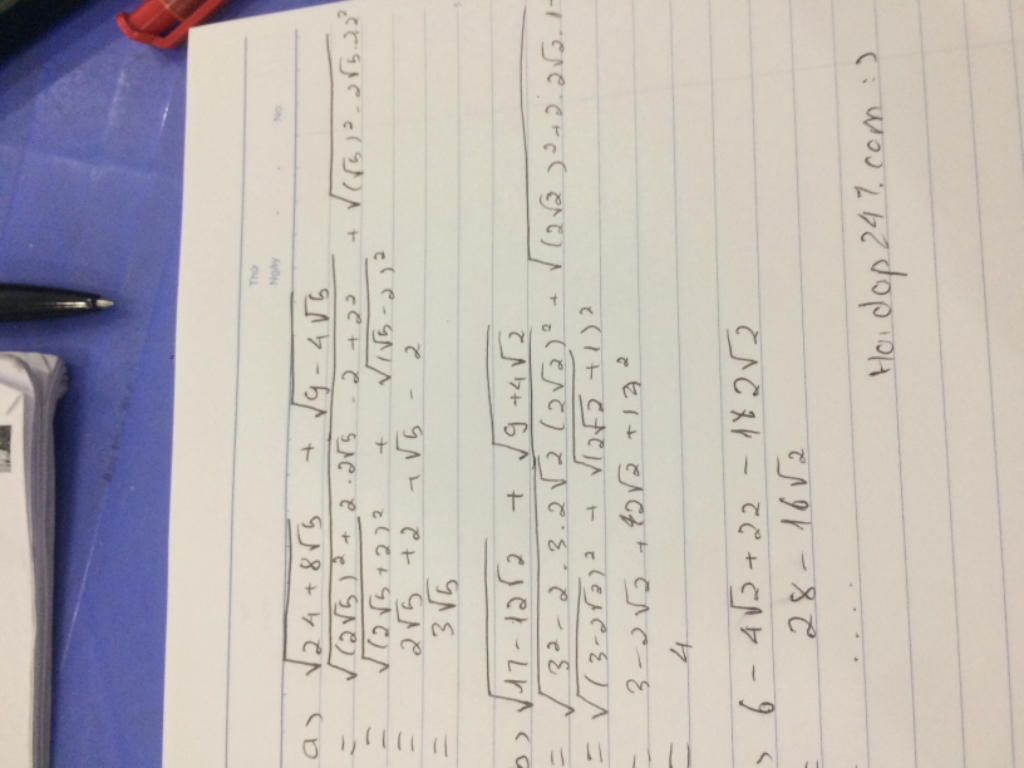 Thứ
Ngày
No.
a) √24+8√5 + √9-4√5
= √(2√5)²+2.2√5.2+2² + √(√5)²-2√5.2.2²
= √(2√5+2)² + √(√5-2)²
= 2√5+2+√5-2
= 3√5
b) √17-12√2 + √9+4√2
= √3²-2.3.2√2(2√2)² + √(2√2)²+2.2√2.1
= √(3-2√2)² + √(2√2+1)²
= 3-2√2+2√2+1
= 4
) 6-4√2+22-12√2
= 28-16√2
.....
Hoidap247.com :)